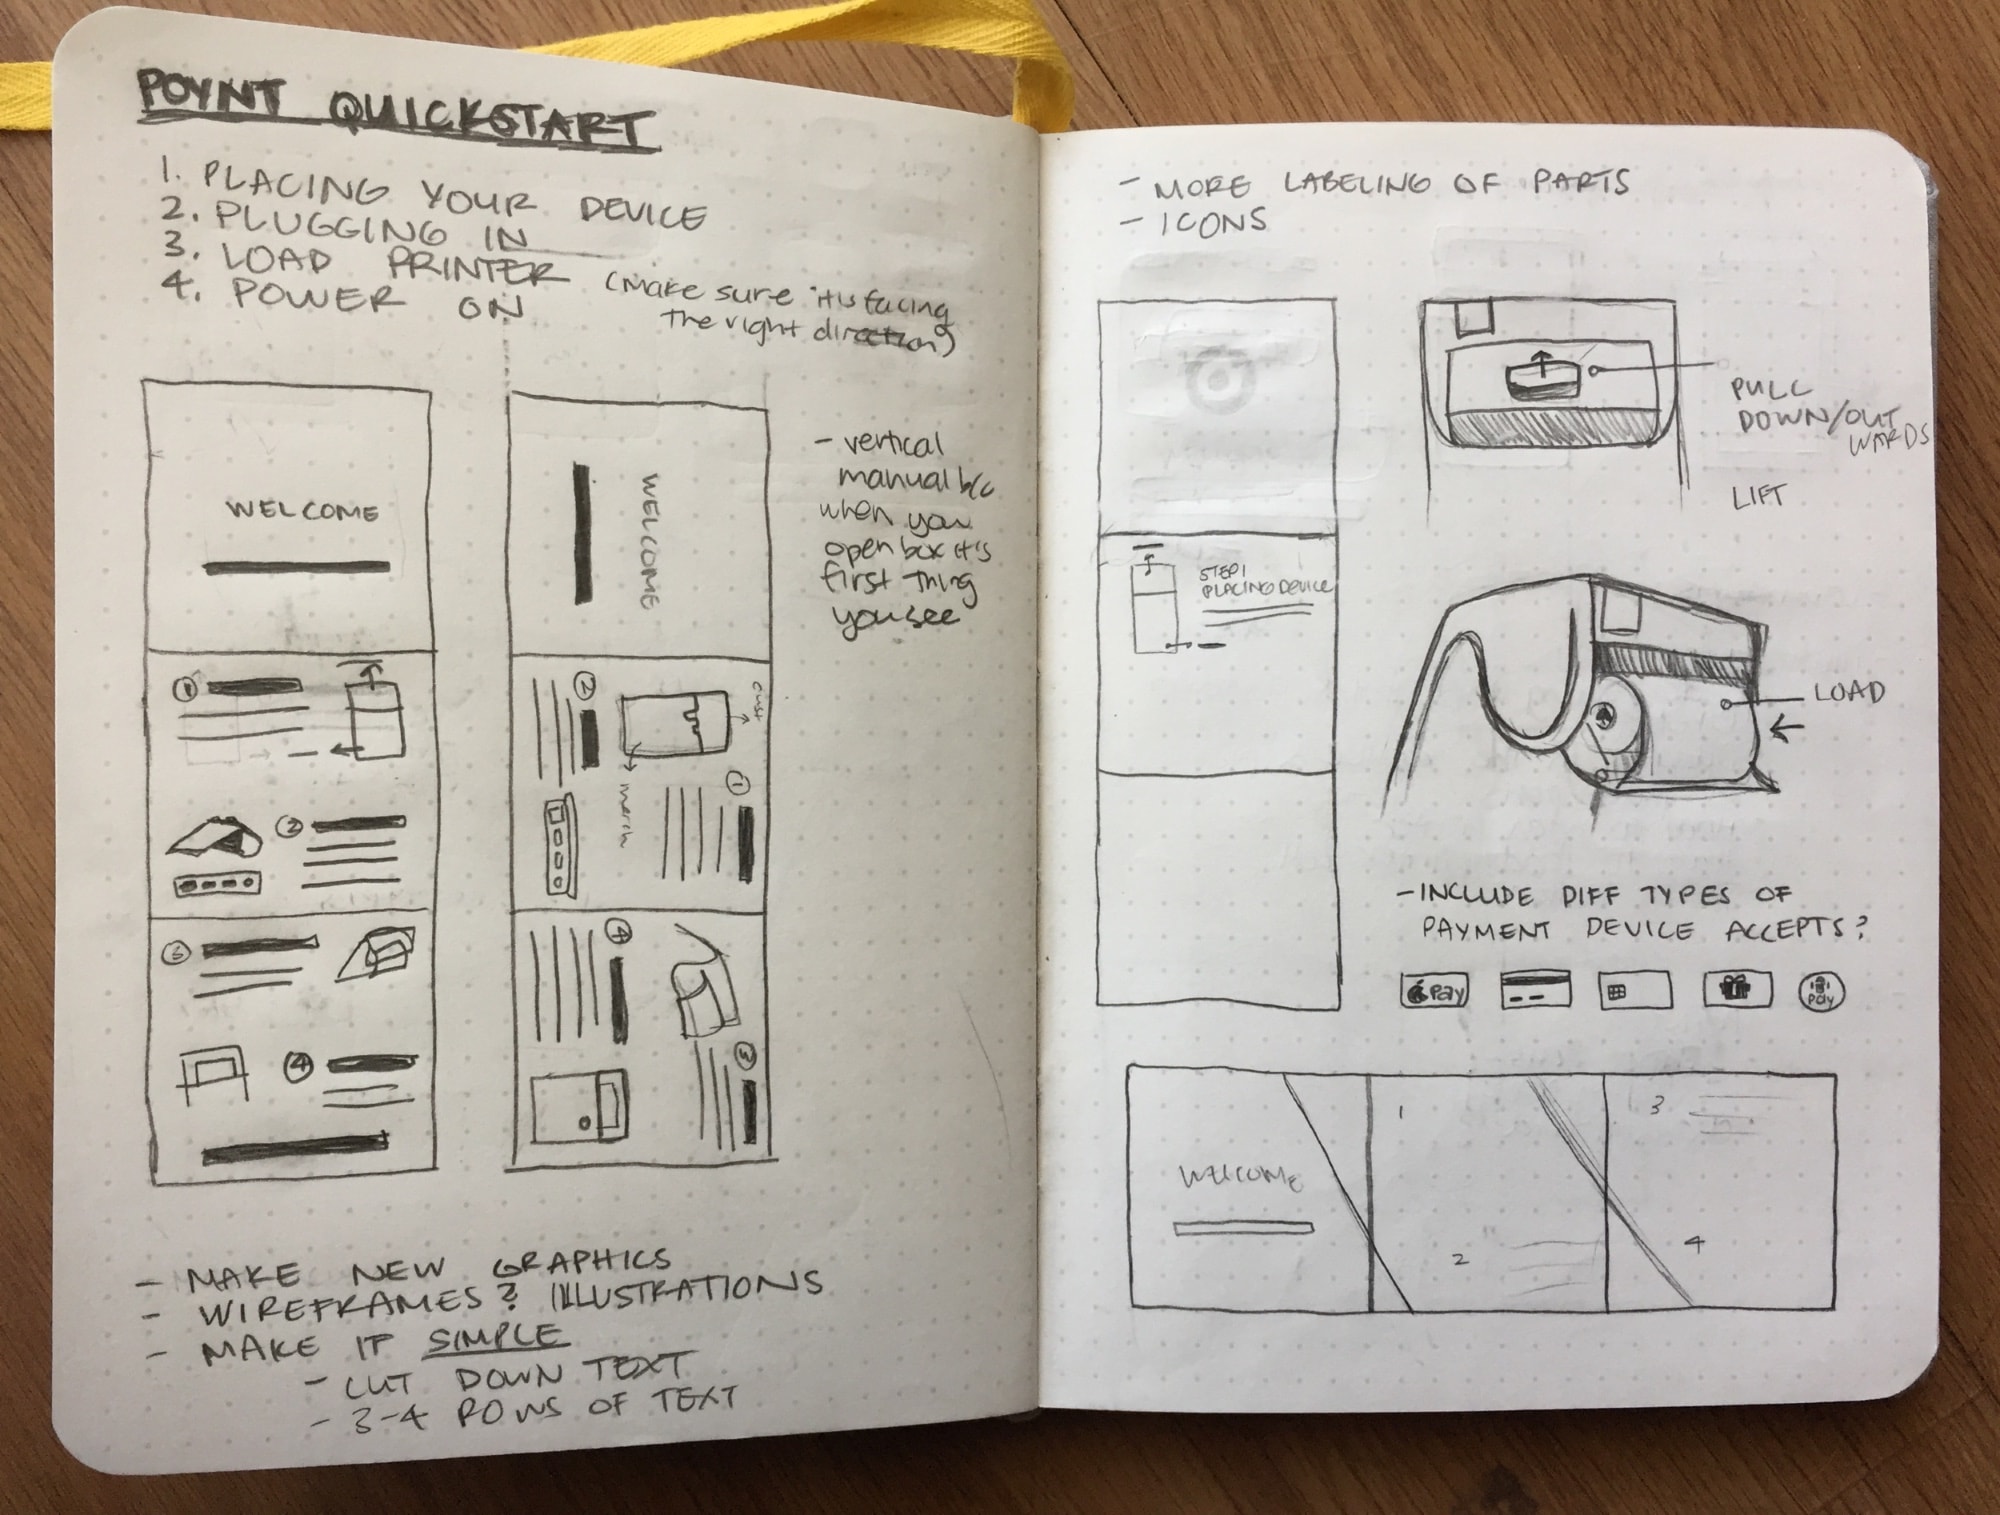 POYNT QUICKSTART
1. PLACING YOUR DEVICE
2. PLUGGING IN
3. LOAD PRINTER (Make sure it is facing
the right direction)
4. POWER ON
WELCOME
1
2
3
4
WELCOME
2
cust
1
merch
4
3
- vertical
manual b/c
when you
open box it's
first thing
you see
- MAKE NEW GRAPHICS
- WIREFRAMES? ILLUSTRATIONS
- MAKE IT SIMPLE
- CUT DOWN TEXT
- 3-4 ROWS OF TEXT
- MORE LABELING OF PARTS
- ICONS
STEP 1
PLACING DEVICE
PULL
DOWN/OUT
WARDS
LIFT
LOAD
- INCLUDE DIFF TYPES OF
PAYMENT DEVICE ACCEPTS?
Pay
Pay
WELCOME
1
2
3
4